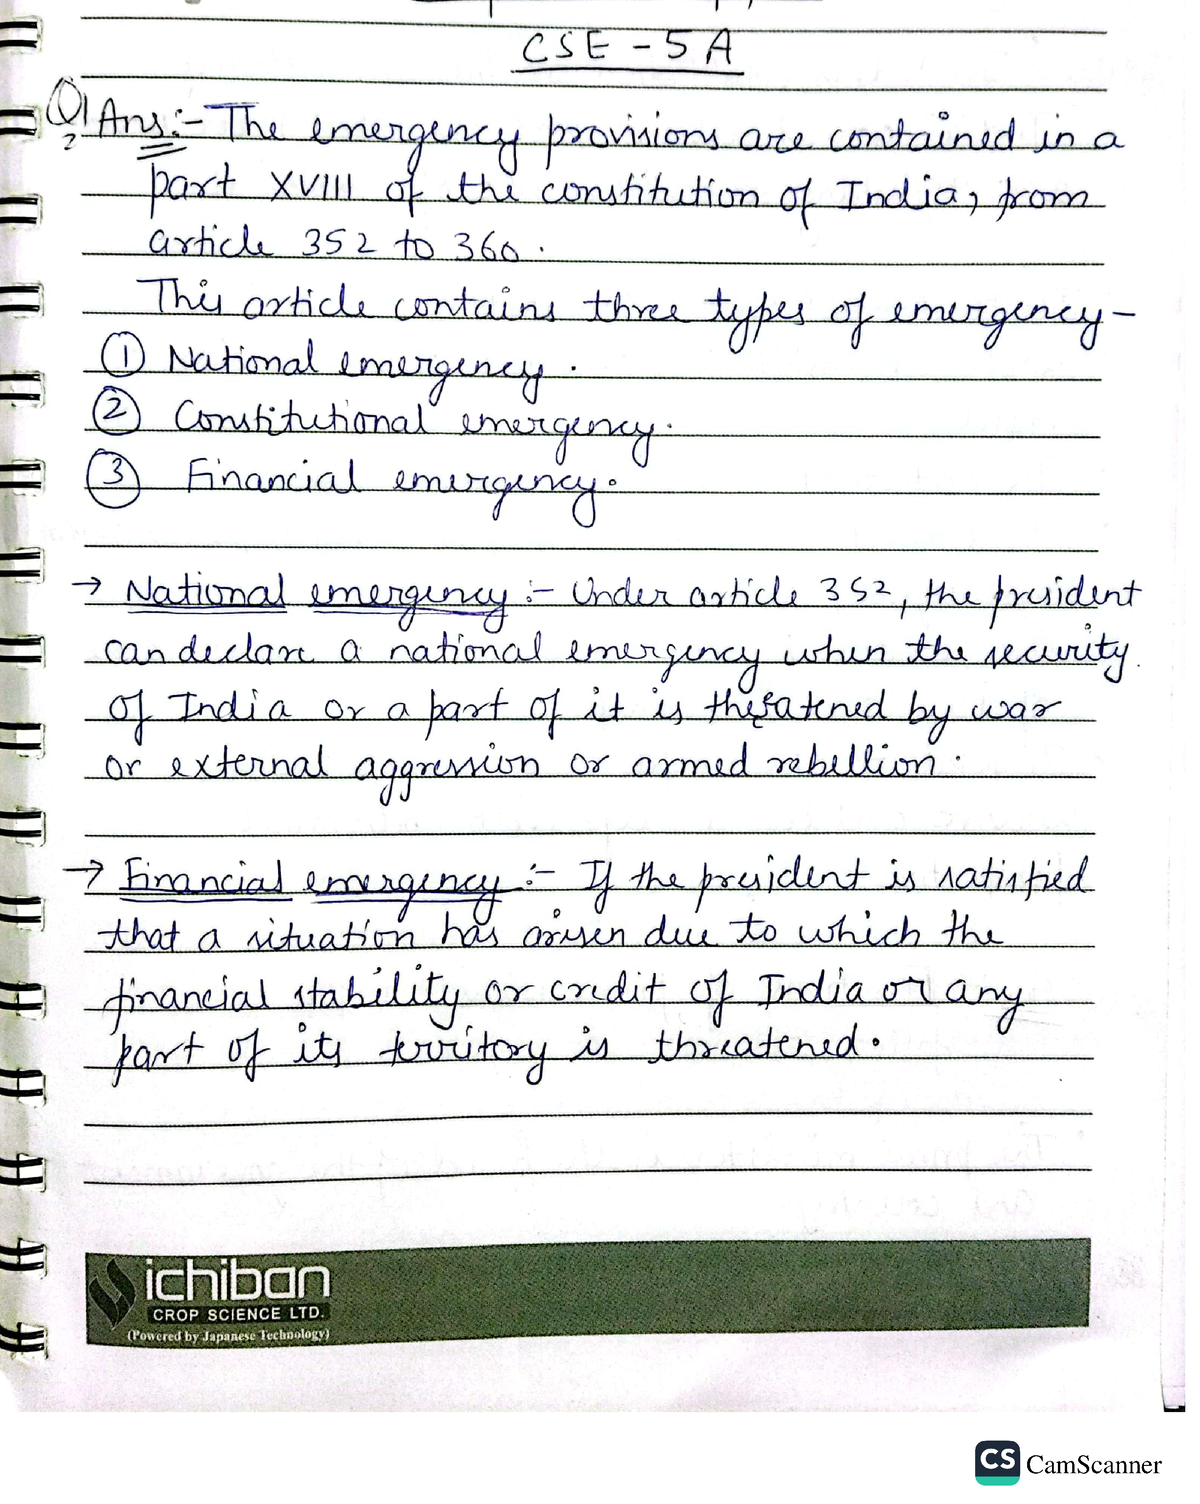 CSE - 5A
Q1 Ans :- The emergency provisions are contained in a
2
part XVIII of the constitution of India, from
article 352 to 360.
This article contains three types of emergency -
① National emergency.
② Constitutional emergency.
③ Financial emergency.
→ National emergency :- Under article 352, the president
can declare a national emergency when the security
of India or a part of it is threatened by war
or external aggression or armed rebellion.
→ Financial emergency :- If the president is satisfied
that a situation has arisen due to which the
financial stability or credit of India or any
part of its territory is threatened.
ichiban
CROP SCIENCE LTD.
(Powered by Japanese Technology)
CS CamScanner